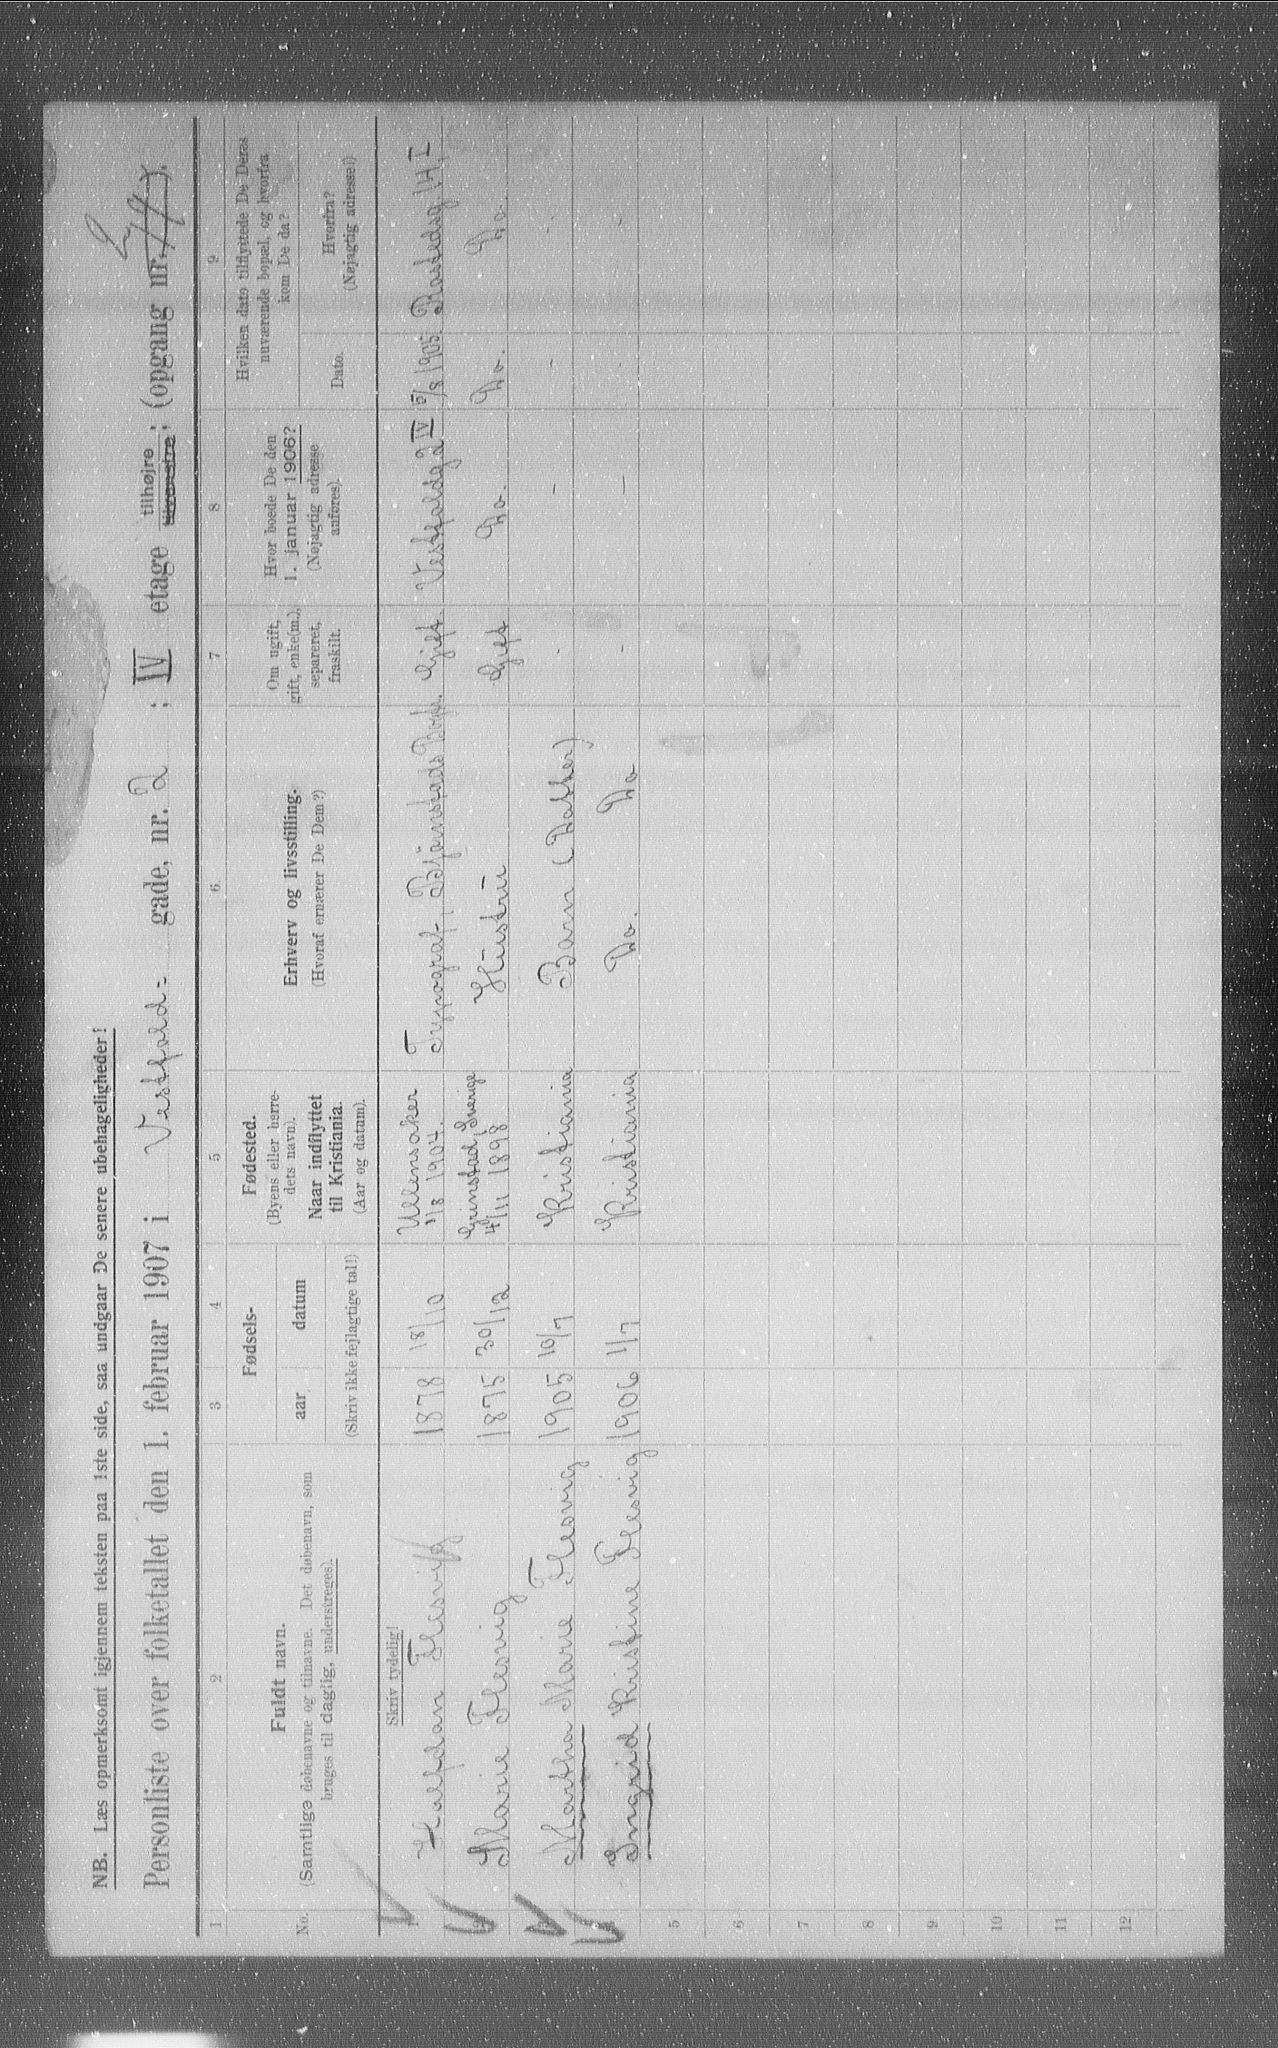 NB. Læs opmerksomt igjennem teksten paa 1ste side, saa undgaar De senere ubehageligheder!
Personliste over folketallet den 1. februar 1907 i Vestfold- gade, nr. 2 ; IV etage tilhøjre tilvenstre ; (opgang nr. ).
1 2 3 4 5 6 7 8 9
No.
Fuldt navn.
(Samtlige døbenavne og tilnavne. Det døbenavn, som
bruges til daglig, understreges).
Fødsels-
aar datum
(Skriv ikke fejlagtige tal!)
Fødested.
(Byens eller herre-
dets navn).
Naar indflyttet
til Kristiania.
(Aar og datum).
Erhverv og livsstilling.
(Hvoraf ernærer De Dem?)
Om ugift,
gift, enke(m.),
separeret,
fraskilt.
Hvor boede De den
1. januar 1906?
(Nøjagtig adresse
anføres).
Hvilken dato tilflyttede De Deres
nuværende bopæl, og hvorfra
kom De da?
Dato.
Hvorfra?
(Nøjagtig adresse!)
Skriv tydelig!
1 Halfdan Flesvig 1878 18/10 Ullensaker 1/8 1904. Typograf, Bjørnstads Bogtr. Gift. Vestfoldg 2 IV 5/8 1905. Rostedsg 14, I
2 Marie Flesvig 1875 30/12 Grinstad, Sverige 4/11 1898 Hustru Gift Do. Do. Do.
3 Martha Marie Flesvig 1905 10/7 Kristiania Barn (Datter) - - - -
4 Ingrid Kristine Flesvig 1906 1/7 Kristiania Do. Do - - - -
5
6
7
8
9
10
11
12